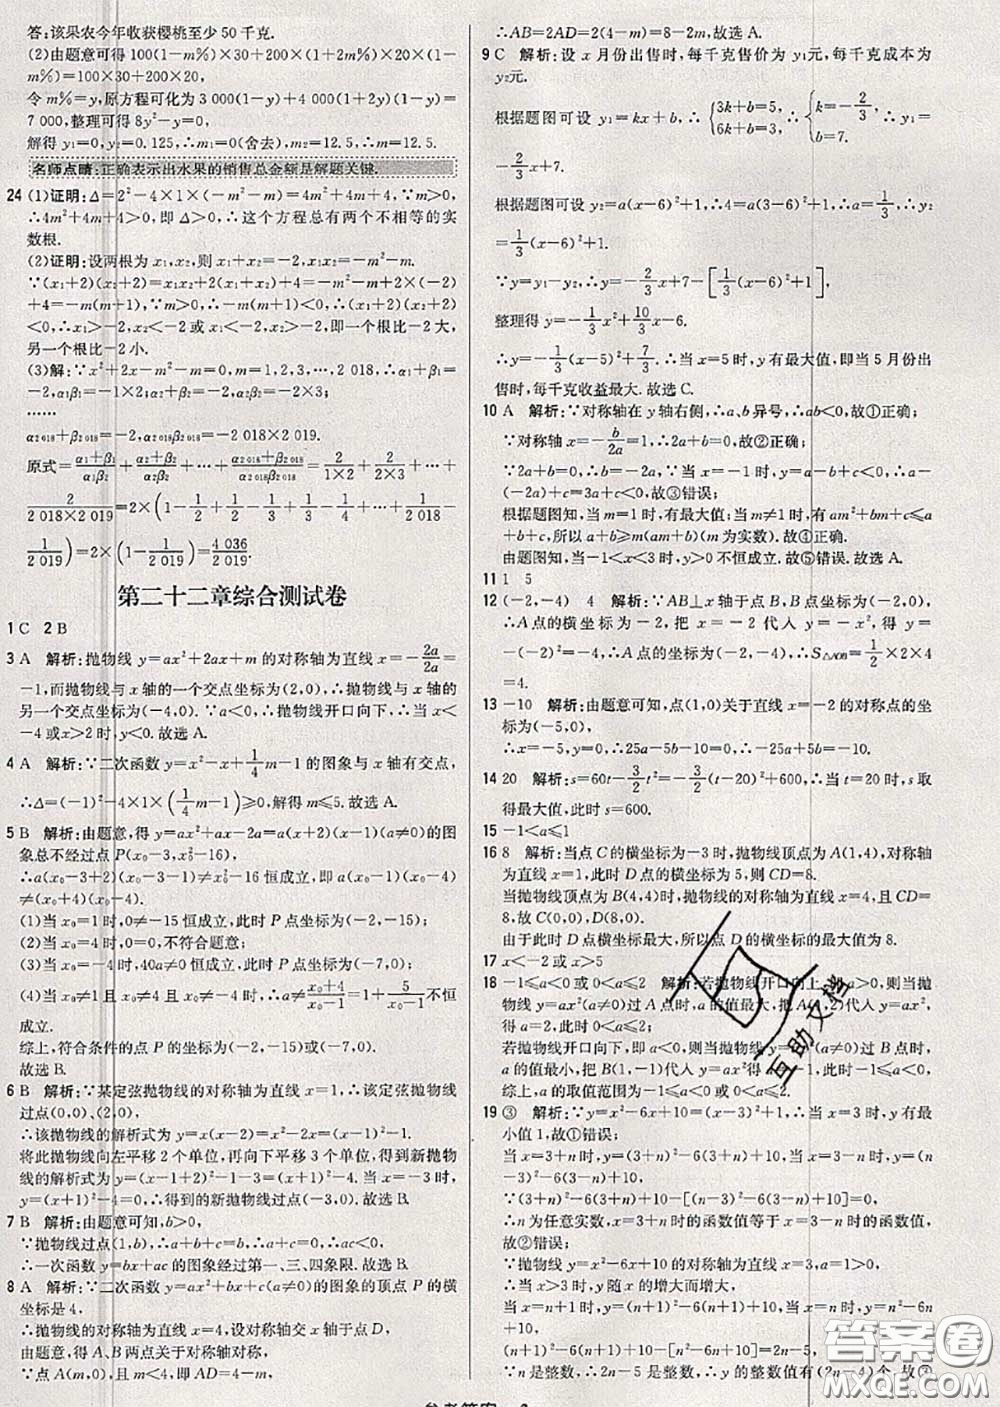 答:该果农今年收获樱桃至少 50 千克.
(2)由题意可得 100(1-m%)×30+200×(1+2m%)×20(1-
m%)=100×30+200×20,
令 m%=y,原方程可化为 3 000(1-y)+4 000(1+2y)(1-y)=
7 000,整理可得 8y²-y=0.
解得 y₁=0,y₂=0.125,∴m₁=0(舍去),m₂=12.5,∴m=12.5.
名师点睛:正确表示出水果的销售总金额是解题关键.
24 (1)证明:Δ=2²-4×1×(-m²-m)=4m²+4m+4,∵m>0,
∴4m²+4m+4>0,即 Δ>0,∴这个方程总有两个不相等的实
数根.
(2)证明:设两根为 x₁,x₂,则 x₁+x₂=-2,x₁x₂=-m²-m.
∵(x₁+2)(x₂+2)=x₁x₂+2(x₁+x₂)+4=-m²-m+2×(-
2)+4=-m(m+1),∵m>0,∴-m(m+1)<0,∴(x₁+2)(x₂+2)
<0,∴x₁>-2,x₂<-2 或 x₁<-2,x₂>-2,即一个根比-2 大,
另一个根比-2 小.
(3)解:∵x²+2x-m²-m=0,m=1,2,3,…,2 018,∴α₁+β₁=
-2,α₁β₁=-1×2;α₂+β₂=-2,α₂β₂=-2×3;
……
α₂ ₀₁₈+β₂ ₀₁₈=-2,α₂ ₀₁₈β₂ ₀₁₈=-2 018×2 019.
原式=(α₁+β₁)/(α₁β₁)+(α₂+β₂)/(α₂β₂)+…+(α₂ ₀₁₈+β₂ ₀₁₈)/(α₂ ₀₁₈β₂ ₀₁₈)=2/(1×2)+2/(2×3)+…+
2/(2 018×2 019)=2×(1-1/2+1/2-1/3+1/3-1/4+…+1/2 018-
1/2 019)=2×(1-1/2 019)=4 036/2 019.
第二十二章综合测试卷
1 C 2 B
3 A 解析:抛物线 y=ax²+2ax+m 的对称轴为直线 x=-2a/2a=
-1,而抛物线与 x 轴的一个交点坐标为(2,0),∴抛物线与 x 轴的
另一个交点坐标为(-4,0).∵a<0,∴抛物线开口向下,∴当 x<
-4 或x>2 时,y<0.故选 A.
4 A 解析:∵二次函数 y=x²-x+1/4m-1 的图象与 x 轴有交点,
∴Δ=(-1)²-4×1×(1/4m-1)≥0,解得 m≤5.故选 A.
5 B 解析:由题意,得 y=ax²+ax-2a=a(x+2)(x-1)(a≠0)的图
象总不经过点 P(x₀-3,x₀²-16),
∴a(x₀-3+2)(x₀-3-1)≠x₀²-16 恒成立,即 a(x₀-1)(x₀-4)
≠(x₀+4)(x₀-4)恒成立.
(1)当 x₀=1 时,0≠-15 恒成立,此时 P 点坐标为(-2,-15);
(2)当 x₀=4 时,0=0,不符合题意;
(3)当 x₀=-4 时,40a≠0 恒成立,此时 P 点坐标为(-7,0);
(4)当 x₀≠1 且 x₀≠4 且 x₀≠-4 时,a≠(x₀+4)/(x₀-1)=1+5/(x₀-1)不恒
成立.
综上,符合条件的点 P 的坐标为(-2,-15)或(-7,0).
故选 B.
6 B 解析:∵某定弦抛物线的对称轴为直线 x=1,∴该定弦抛物线
过点(0,0)、(2,0),
∴该抛物线的解析式为 y=x(x-2)=x²-2x=(x-1)²-1.
将此抛物线向左平移 2 个单位,再向下平移 3 个单位,得到新抛物
线的解析式为 y=(x-1+2)²-1-3=(x+1)²-4.当 x=-3 时,
y=(x+1)²-4=0,∴得到的新抛物线过点(-3,0).故选 B.
7 B 解析:由题意可知,b>0,
∵抛物线过点(1,b),∴a+b+c=b,∴a+c=0,∴ac<0,
∴一次函数 y=bx+ac 的图象经过第一、三、四象限.故选 B.
8 A 解析:∵二次函数 y=ax²+bx+c(a≠0)的图象的顶点 P 的横
坐标是 4,
∴抛物线的对称轴为直线 x=4,设对称轴交 x 轴于点 D,
由题可知点 A,B 关于抛物线对称轴对称,
∵点 A(m,0),且 m<4,即 AD=4-m,
∴AB=2AD=2(4-m)=8-2m,故选 A.
9 C 解析:设 x 月份出售时,每千克售价为 y₁元,每千克成本为
y₂元.
根据题图可设 y₁=kx+b,∴{3k+b=5, 6k+b=3,∴{k=-2/3, b=7,∴y₁=
-2/3x+7.
根据题图可设 y₂=a(x-6)²+1,∴4=a(3-6)²+1,∴a=1/3,∴y₂
=1/3(x-6)²+1.
∵y=y₁-y₂,∴y=-2/3x+7-[1/3(x-6)²+1],
整理得 y=-1/3x²+10/3x-6.
∴y=-1/3(x-5)²+7/3.∴当 x=5 时,y 有最大值,即当 5 月份出
售时,每千克收益最大.故选 C.
10 A 解析:∵对称轴在 y 轴右侧,∴a、b 异号,∴ab<0,故①正确;
∵对称轴 x=-b/2a=1,∴2a+b=0,故②正确;
∵2a+b=0,∴b=-2a.∵当 x=-1 时,y=a-b+c<0,∴a-
(-2a)+c=3a+c<0,故③错误;
根据题图知,当 m=1 时,有最大值;当 m≠1 时,有 am²+bm+c≤a
+b+c,所以 a+b≥m(am+b)(m 为实数).故④正确.
由题图知,当-1<x<3 时,y>0 不恒成立,故⑤错误.故选 A.
11 1 5
12 (-2,-4) 4 解析:∵AB⊥x 轴于点 B,B 点坐标为(-2,0),
∴A 点的横坐标为-2,把 x=-2 代入 y=-x²,得 y=
-(-2)²=-4,∴A 点的坐标为(-2,-4),∴S△AOB=1/2×2×4
=4.
13 -10 解析:由题意可知,点(1,0)关于直线 x=-2 的对称点的坐
标为(-5,0),
∴x=-5 时,y=0,∴25a-5b-10=0,∴25a-5b=10.
14 20 解析:s=60t-3/2t²=-3/2(t-20)²+600,∴当 t=20 时,s 取
得最大值,此时 s=600.
15 -1<a≤1
16 8 解析:当点 C 的横坐标为-3 时,抛物线顶点为 A(1,4),对称轴
为直线 x=1,此时 D 点横坐标为 5,则 CD=8.
当抛物线顶点为 B(4,4)时,抛物线的对称轴为直线 x=4,且 CD=
8,故 C(0,0),D(8,0).
由于此时 D 点横坐标最大,所以点 D 的横坐标的最大值为 8.
17 x<-2 或 x>5
18 -1≤a<0 或 0<a≤2 解析:若抛物线开口向上,即 a>0,则当抛
物线 y=ax²(a≠0)过 A 点时,a 的值最大,把 A(1,2)代入 y=ax²,
得 a=2,此时 0<a≤2;
若抛物线开口向下,即 a<0,则当抛物线 y=ax²(a≠0)过 B 点时,
a 的值最小,把 B(1,-1)代入 y=ax²得 a=-1,此时-1≤a<0,
综上,a 的取值范围为-1≤a<0 或 0<a≤2.
19 ③ 解析:∵y=x²-6x+10=(x-3)²+1,∴当 x=3 时,y 有最
小值 1,故①错误;
当 x=3+n 时,y=(3+n)²-6(3+n)+10,
当 x=3-n 时,y=(n-3)²-6(3-n)+10,
∵(3+n)²-6(3+n)+10-[(n-3)²-6(3-n)+10]=0,
∴n 为任意实数,x=3+n 时的函数值等于 x=3-n 时的函数值,
故②错误;
∵抛物线 y=x²-6x+10 的对称轴为 x=3,a=1>0,
∴当 x>3 时,y 随 x 的增大而增大,
当 x=n+1 时,y=(n+1)²-6(n+1)+10,
当 x=n 时,y=n²-6n+10,
(n+1)²-6(n+1)+10-[n²-6n+10]=2n-5,
∵n 是整数,∴2n-5 是整数,
参考答案
互助文档
答案圈
MXQE.COM